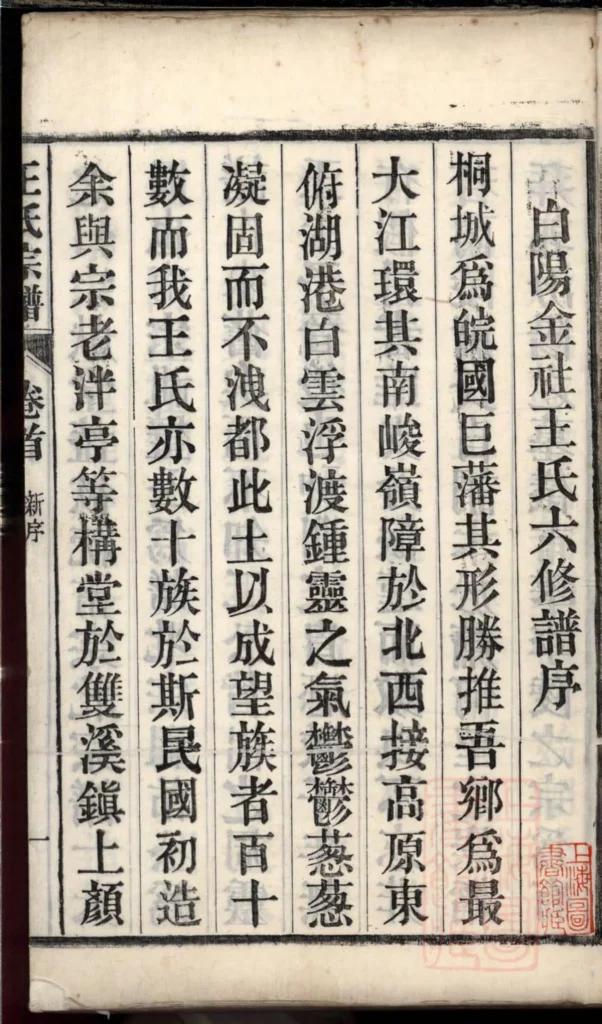 白陽金社王氏六修譜序
桐城爲皖國巨藩其形勝推吾鄉爲最
大江環其南峻嶺障於北西接高原東
俯湖港白雲浮渡鍾靈之氣鬱鬱葱葱
凝固而不洩都此土以成望族者百十
數而我王氏亦數十族於斯民國初造
余與宗老泮亭等構堂於雙溪鎭上顏
王氏宗譜 卷首 新序 一
上海圖書館藏